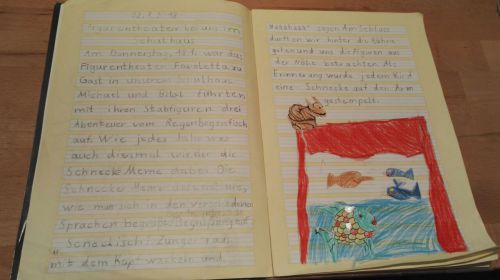 22.1.2018
Figurentheater bei uns im
Schulhaus
Am Donnerstag, 18.1. war das
Figurentheater Fährbetta zu
Gast in unserem Schulhaus.
Michael und Bibal führten
mit ihren Stabfiguren drei
Abenteuer vom Regenbogenfisch
auf. Wie jedes Jahr war
auch diesmal wieder die
Schnecke Meme dabei. Die
Schnecke Meme
wie man sich in den verschiedenen
Sprachen begrüsst. Begrüssung auf
Schneckisch: Zunge raus,
mit dem Kopf wackeln und
sagen. Am Schluss
durften wir hinter die Bühne
gehen und uns die Figuren aus
der Nähe betrachten. Als
Erinnerung wurde jedem Kind
eine Schnecke auf den Arm
gestempelt.